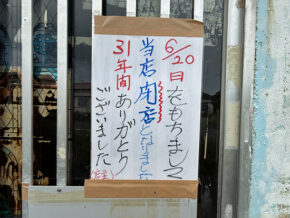 6/20日をもちまして
当店閉店となりました
31年間ありがとう
ございました(店主)